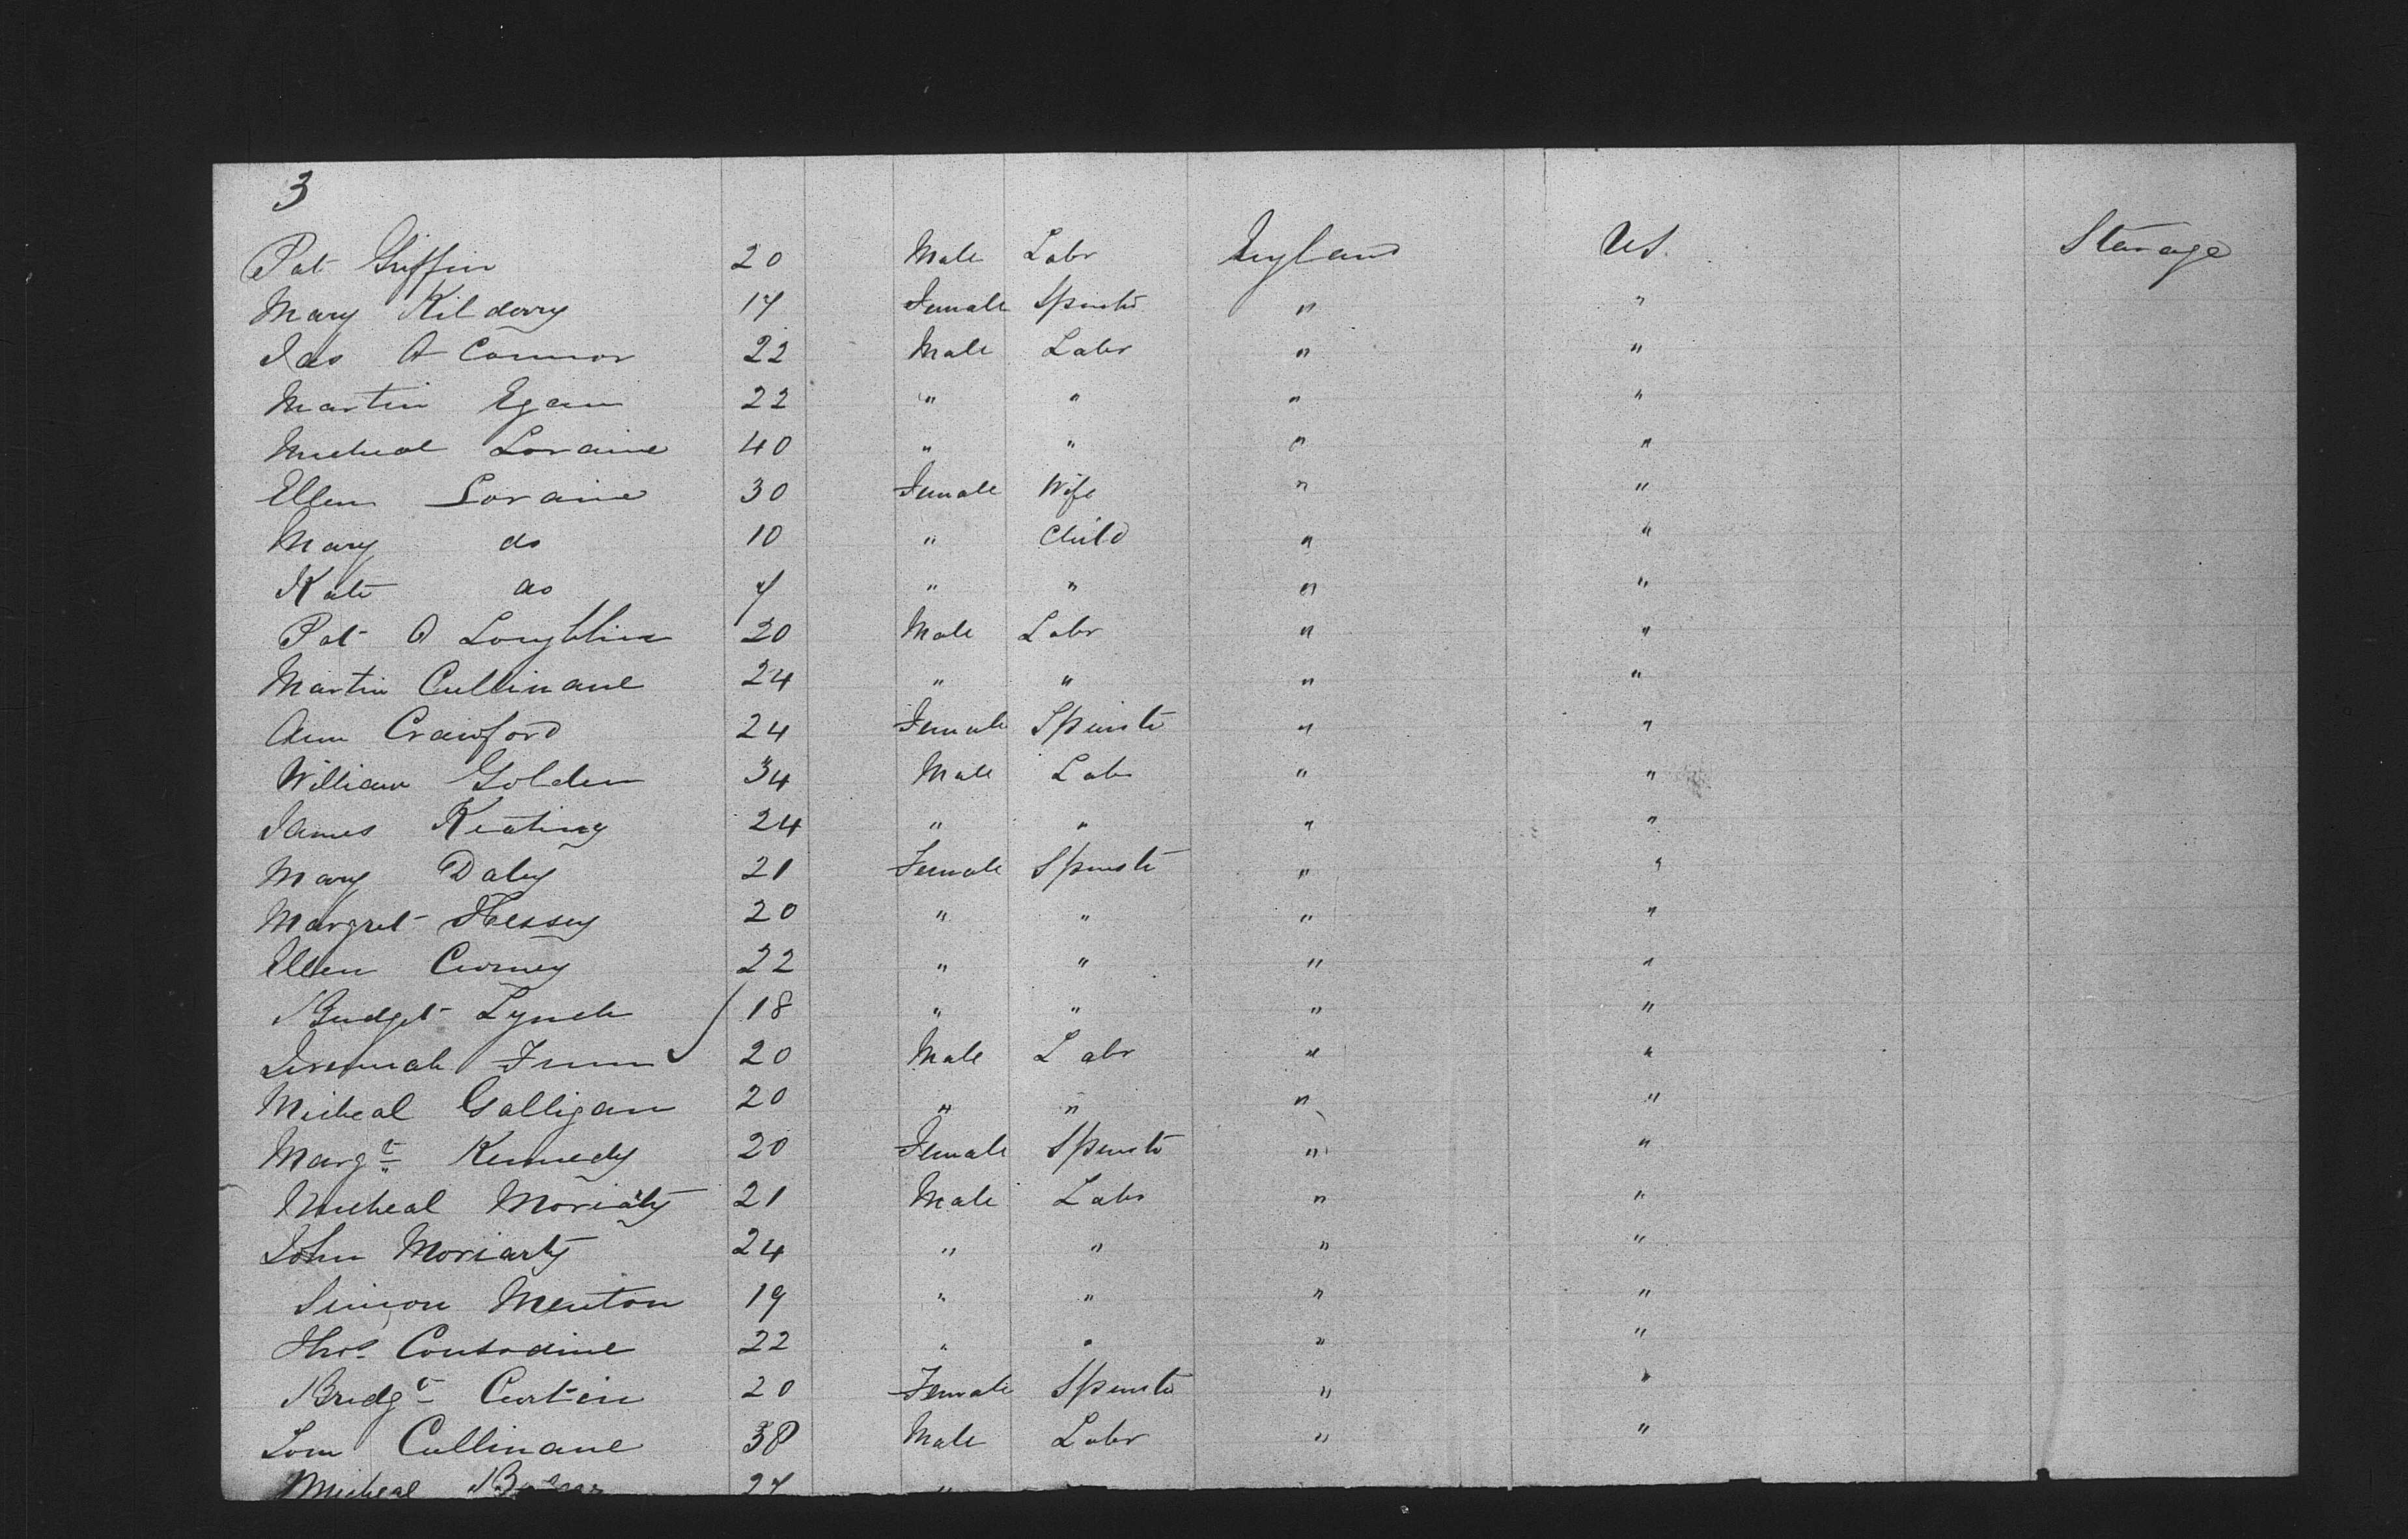 3
Pat Griffin 20 Male Labr England US. Sterage
Mary Kilderry 17 Female Spinstr " "
Jas O Connor 22 Male Labr " "
Martin Egan 22 " " " "
Micheal Loraine 40 " " " "
Ellen Loraine 30 Female Wife " "
Mary do 10 " Child " "
Kate do 7 " " " "
Pat O Loughlin 20 Male Labr " "
Martin Cullinane 24 " " " "
Ann Crawford 24 Female Spinstr " "
William Golden 34 Male Labr " "
James Keating 24 " " " "
Mary Daly 21 Female Spinstr " "
Margret Hessey 20 " " " "
Ellen 22 " " " "
Bridget Lynch 18 " " " "
Jeremiah 20 Male Labr " "
Micheal Galligan 20 " " " "
Margt Kennedy 20 Female Spinstr " "
Micheal Moriaty 21 Male Labr " "
John Moriarty 24 " " " "
Simon Menton 19 " " " "
Thos Consodine 22 " " " "
Bridgt Curtin 20 Female Spinstr " "
Tom Cullinane 38 Male Labr " "
Micheal 27 "